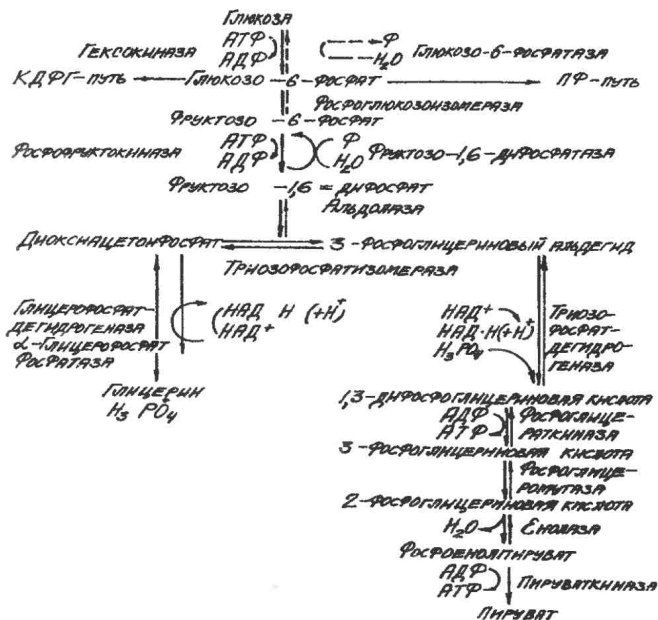 Глюкоза
Гексокиназа АТФ АДФ Ф Н2О Глюкозо-6-фосфатаза
КДФГ-путь Глюкозо -6-фосфат ПФ-путь
Фосфоглюкозоизомераза
Фруктозо -6-фосфат
Фосфофруктокиназа АТФ АДФ Ф Н2О Фруктозо-1,6-дифосфатаза
Фруктозо -1,6 = дифосфат
Альдолаза
Диоксиацетонфосфат 3-фосфоглицериновый альдегид
Триозофосфатизомераза
Глицерофосфат-
дегидрогеназа
α-Глицерофосфат
фосфатаза
НАД Н (+Н)+
НАД+
Глицерин
H3 PO4
НАД+
НАД·Н(+Н)+
H3PO4
Триозо-
фосфат-
дегидро-
геназа
1,3-дифосфоглицериновая кислота
АДФ
АТФ
Фосфоглице-
раткиназа
3-фосфоглицериновая кислота
Фосфоглице-
ромутаза
2-фосфоглицериновая кислота
H2O Енолаза
Фосфоенолпируват
АДФ
АТФ
Пируваткиназа
Пируват